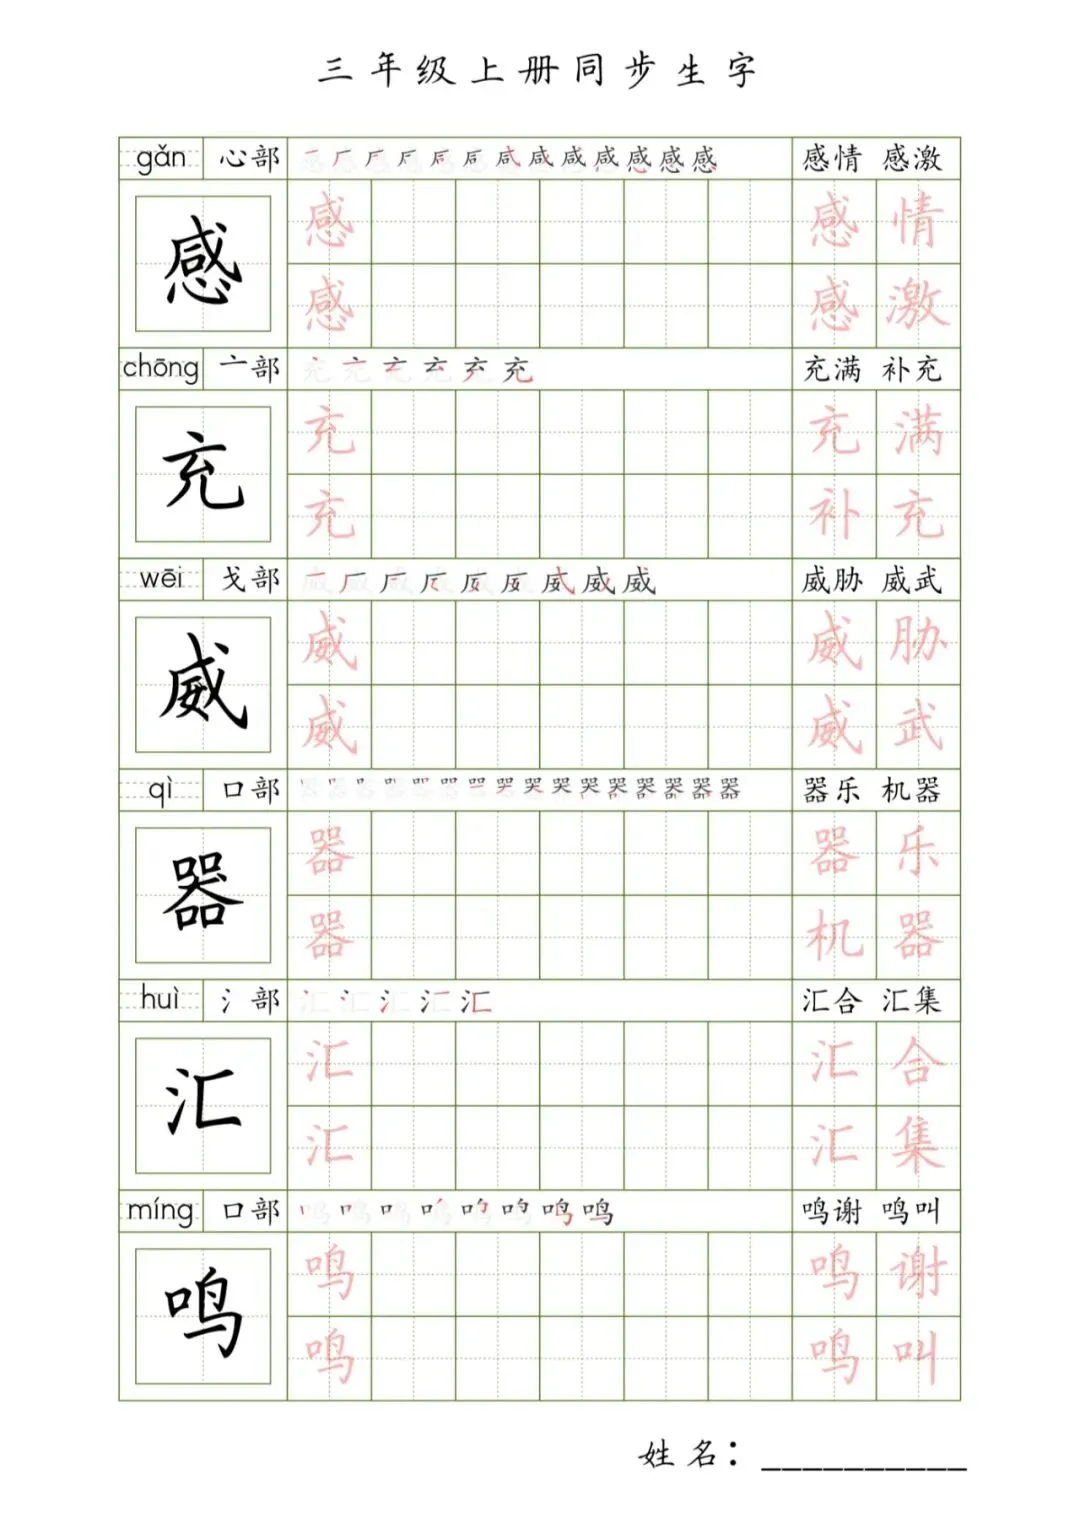 三年级上册同步生字
gǎn 心部 感情 感激
感 感 感 情
感 感 激
chōng 亠部 充满 补充
充 充 充 满
充 补 充
wēi 戈部 威胁 威武
威 威 威 胁
威 威 武
qì 口部 器乐 机器
器 器 器 乐
器 机 器
huì 氵部 汇合 汇集
汇 汇 汇 合
汇 汇 集
míng 口部 鸣谢 鸣叫
鸣 鸣 鸣 谢
鸣 鸣 叫
姓名：__________